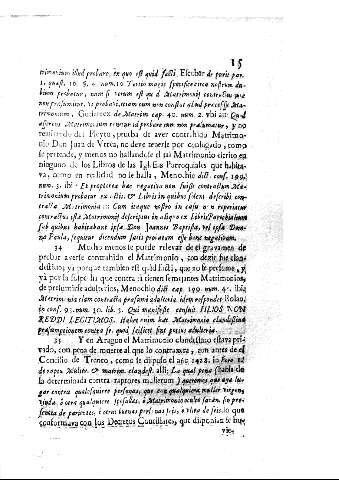 15
trimonium illud probare, in quo est quid facti, Escobar de puris par.
1. quæst. 16. §. 4. num.10
bium probatur, nam si verum est q̃ d Matrimoniũ contractũ
non præsumitur, & probari, etiam cum non constat aliud præcessisse Ma-
trimonium, Gutierrez de Matrim. cap. 40. num. 2. vbi ait: Quod
asserens Matrimonium tenetur id probare cum non præsumatur, y no
resultando del Pleyto, prueba de aver contrahido Matrimo-
nio Don Juan de Vrrea, no debe tenerse por conjugado, como
se pretende, y menos no hallandose el tal Matrimonio escrito en
ninguno de los Libros de las Iglesias Parroquiales que habita-
va, como en realidad no se halla, Menochio dict. conf. 199.
num. 5. ibi: Et propterea hæc negativa non fuisse contractum Ma-
trimonium probatur ex dictis. & Libris in quibus solent describi con-
tracta Matrimonia: Cum itaque nostro in casu non reperiatur
contractus ista Matrimonij descriptus in aliquo ex Libris Parochialium
sub quibus habitabant ipse Don Joannes Baptista, vel ipsa Don-
na Paula, sequitur dicendum satis probatum esse hanc negativam.
34 Mucho menos se puede relevar de el gravamen de
probar averse contrahido el Matrimonio, con dezir fue clan-
destino; ya porque tambien est quid facti, que no se presume, y
ya por la culpa la que contrae, si tienen semejantes Matrimonios,
de presumirse adulterios, Menochio dict. cap. 199. num. 41. ibi:
Matrimonia clam contracta præsumi adulteria, idem respondet Rolan.
in conf. 93. num. 10. lib. 3. Qui manifeste censuit FILIOS NON
REDDI LEGITIMOS. Habet enim hæc Matrimonia clandestina
præsumptionem contra se, quod scilicet sint potius adulteria.
35 Y en Aragon el Matrimonio clandestino estava pri-
vado, con pena de muerte al que lo contratava, aun antes de el
Concilio de Trento, como se dispuso el año 1428. in foro
de raptu Mulier. & matrim. clandest. alli: La qual pena
la determinada contra raptores mulierum ) queremos que aya lu-
gar contra qualesquiere personas, que con qualquiere muller virgen,
viuda, ò otra qualquiere
sencia de parientes, ò otras buenas personas seis, ò vltra de seis. lo que
conformava con los Decretos Conciliares, que disponian se hi-